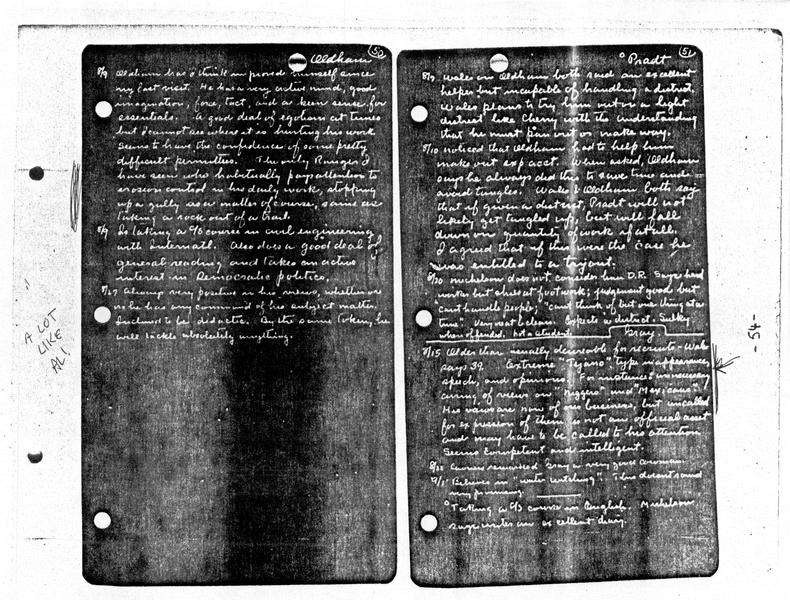 50
Oldham
8/9 Oldham has s think in proved himself since
my last visit. He has a very active mind, good
imagination, force, tact, and a keen sense for
essentials. A good deal of egotism at times
but I cannot see where it is hurting his work.
Seems to have the confidence of some pretty
difficult permittees. The only Ranger I
have seen who habitually pays attention to
erosion control in his daily work, stopping
up a gully as a matter of course, same as
taking a rock out of a trail.
8/9 Is taking a c/s course in civil engineering
with Internatl. Also does a good deal of
general reading and takes an active
interest in Democratic politics.
8/27 Always very positive in his views, whether or
no he has any command of his subject matter.
Inclined to be didactic. By the same token, he
will tackle absolutely anything.
A LOT
LIKE
AL!
51
Pradt
8/9 Wales and Oldham both said an excellent
helper but incapable of handling a district.
Wales plans to try him out on a light
district like Cherry with the understanding
that he must pan out or make way.
8/10 noticed that Oldham had to help him
make out exp acct. When asked, Oldham
says he always did this to save time and
avoid tangles. Wales & Oldham both say
that if given a district, Pradt will not
likely get tangled up, but will fall
down on quantity of work if at all.
I agreed that if this were the case he
was entitled to a tryout.
8/30 Mickelson does not consider him D.R. Says hard
worker but shies at footwork; judgement good but
can't handle people; "can't think of but one thing at a
time. Very neat & clean. Expects a district. Sulky
when offended, not a student.
Gray
8/15 Older than usually desireable for recruits - Wales
says 39. Extreme "Tejano" type in appearance,
speech, and opinions. For instance: unnecessary
airing of views on "niggers" and "Mexicans".
His views are none of our business, but uncalled
for expression of them is not an official asset
and may have to be called to his attention
Seems competent and intelligent.
8/22 remarked Gray a very good cowman.
Believes in "water witching". This doesn't sound
very promising.
Taking a c/s course in English. Mickelson
says writes an excellent diary.
- 54 -